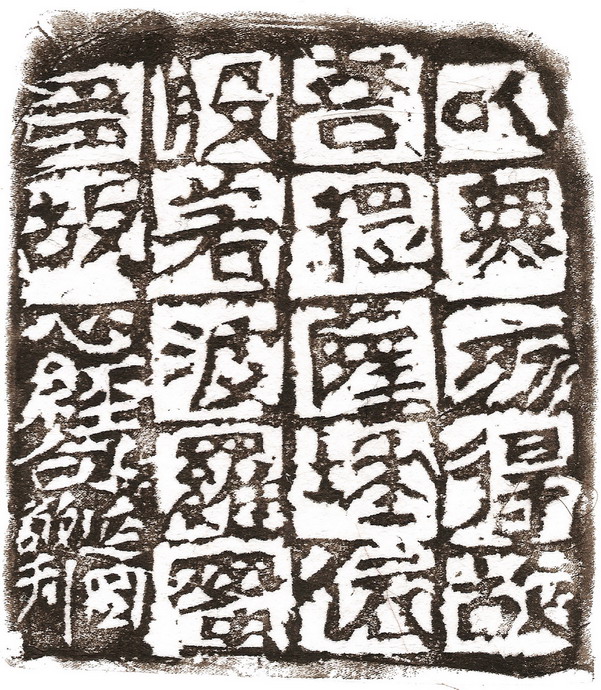 以無所得故
菩提薩埵依
般若波羅蜜
多故
心經句